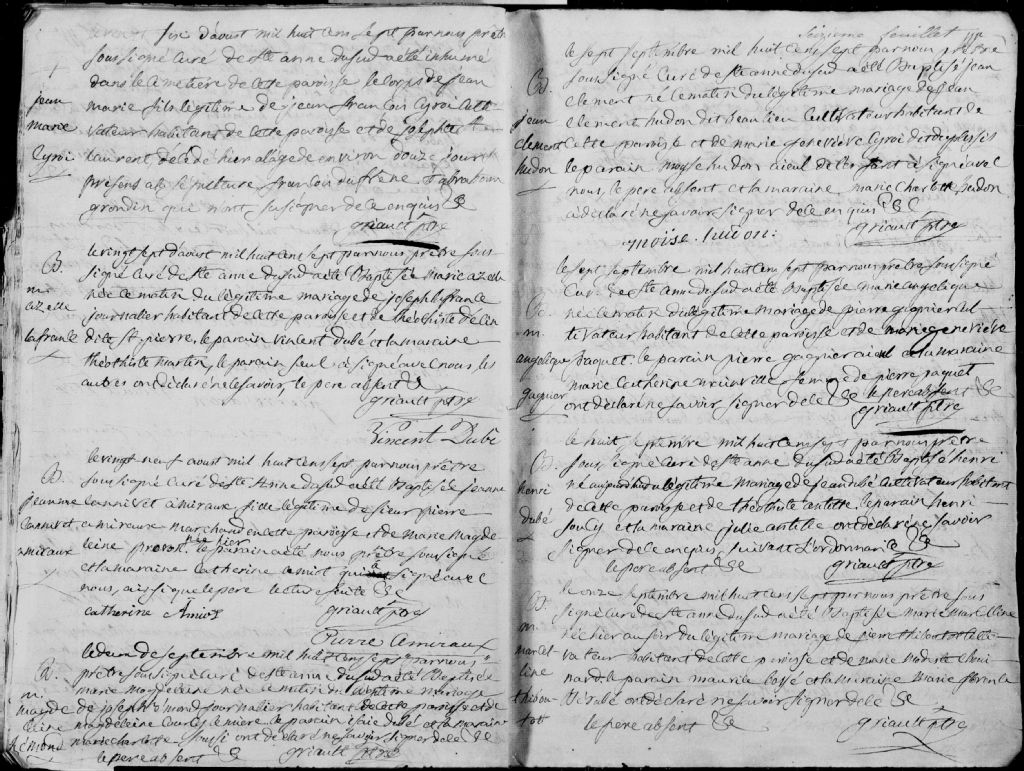 six d'aoust mil huit cens sept par nous prêtre
soussigné Curé de Ste anne du sud a eté inhumé
dans le cimetière de cette paroisse le corps de jean
marie fils légitime de jean françois Cyroi culti
vateur habitant de cette paroisse et de josephte
laurent décédé hier a l'age de environ douze jours
présens a la sepulture françois dufrêne et abraham
grondin qui n'ont su signer de ce enquis
griault ptre
jean
marie
Cyroi
le vingt sept d'aoust mil huit cens sept par nous prêtre sous
signé Curé de Ste anne du sud a eté Baptisée Marie
née le matin du légitime mariage de joseph lafrance
journalier habitant de cette paroisse et de théothiste
dite St. pierre, le parain vincent dubé et la maraine
théothiste martin, le parain seul a signé avec nous, les
autres ont déclaré ne le savoir, le pere absent
griault ptre
Vincent Dubé
B.
m.
lafrance
le vingt neuf aoust mil huit cens sept par nous prêtre
soussigné Curé de Ste Anne du sud a eté Baptisée jeanne
fille légitime de sieur pierre
amiraux marchand en cette paroisse et de Marie Magde
leine provost née hier le parain a eté nous prêtre soussigné
et la maraine Catherine amiot qui a signé avec
nous, ainsi que le pere lecture faite
griault ptre
Catherine Amiot
Pierre Amiraux
B.
jeanne
amiraux
le deux de septembre mil huit cens sept par nous
prêtre soussigné Curé de Ste anne du sud a eté Baptisée
marie magdeleine née le matin du légitime mariage
de joseph émond journalier habitant de cette paroisse et de
magdeleine lemière le parain isaie dubé et la maraine
marie charlotte soussi ont déclaré ne savoir signer de ce
le pere absent griault ptre
B.
m.
magde
leine
hémond
seizieme feuillet
le sept septembre mil huit cens sept par nous prêtre
soussigné Curé de Ste anne du sud a eté Baptisé jean
clement né le matin du légitime mariage de jean
clement hudon dit beaulieu cultivateur habitant de
cette paroisse et de marie geneviève Cyroi dit duplessis
le parain moyse hudon aieul de l'enfant a signé avec
nous, le pere absent et la maraine marie charlotte hudon
a déclaré ne savoir signer de ce enquis
griault ptre
moise hudon
B.
jean
clement
hudon
le sept septembre mil huit cens sept par nous prêtre soussigné
Curé de Ste anne du sud a eté Baptisée marie angelique
née le matin du légitime mariage de pierre gagnier cul
tivateur habitant de cette paroisse et de marie geneviève
paquet. le parain pierre gagnier aieul et la maraine
marie Catherine femme de pierre paquet
ont déclaré ne savoir signer de ce le pere absent
griault ptre
m.
angelique
gagnier
le huit septembre mil huit cens sept par nous prêtre
soussigné curé de Ste anne du sud a eté Baptisé henri
né aujourd'hui du légitime mariage de jean dubé cultivateur habitant
de cette paroisse et de théothiste le parain henri
soucy et la maraine julie ont déclaré ne savoir
signer de ce enquis, suivant l'ordonnance
le pere absent griault ptre
B.
henri
dubé
le onze septembre mil huit cens sept par nous prêtre sous
signé curé de Ste anne du sud a eté Baptisée marie marcelline
née hier au soir du légitime mariage de pierre thibotot culti
vateur habitant de cette paroisse et de marie modeste choui
nard, le parain maurice boyé et la maraine marie
bérubé ont déclaré ne savoir signer de ce
le pere absent griault ptre
B.
m.
marcel
line
thibou
tot